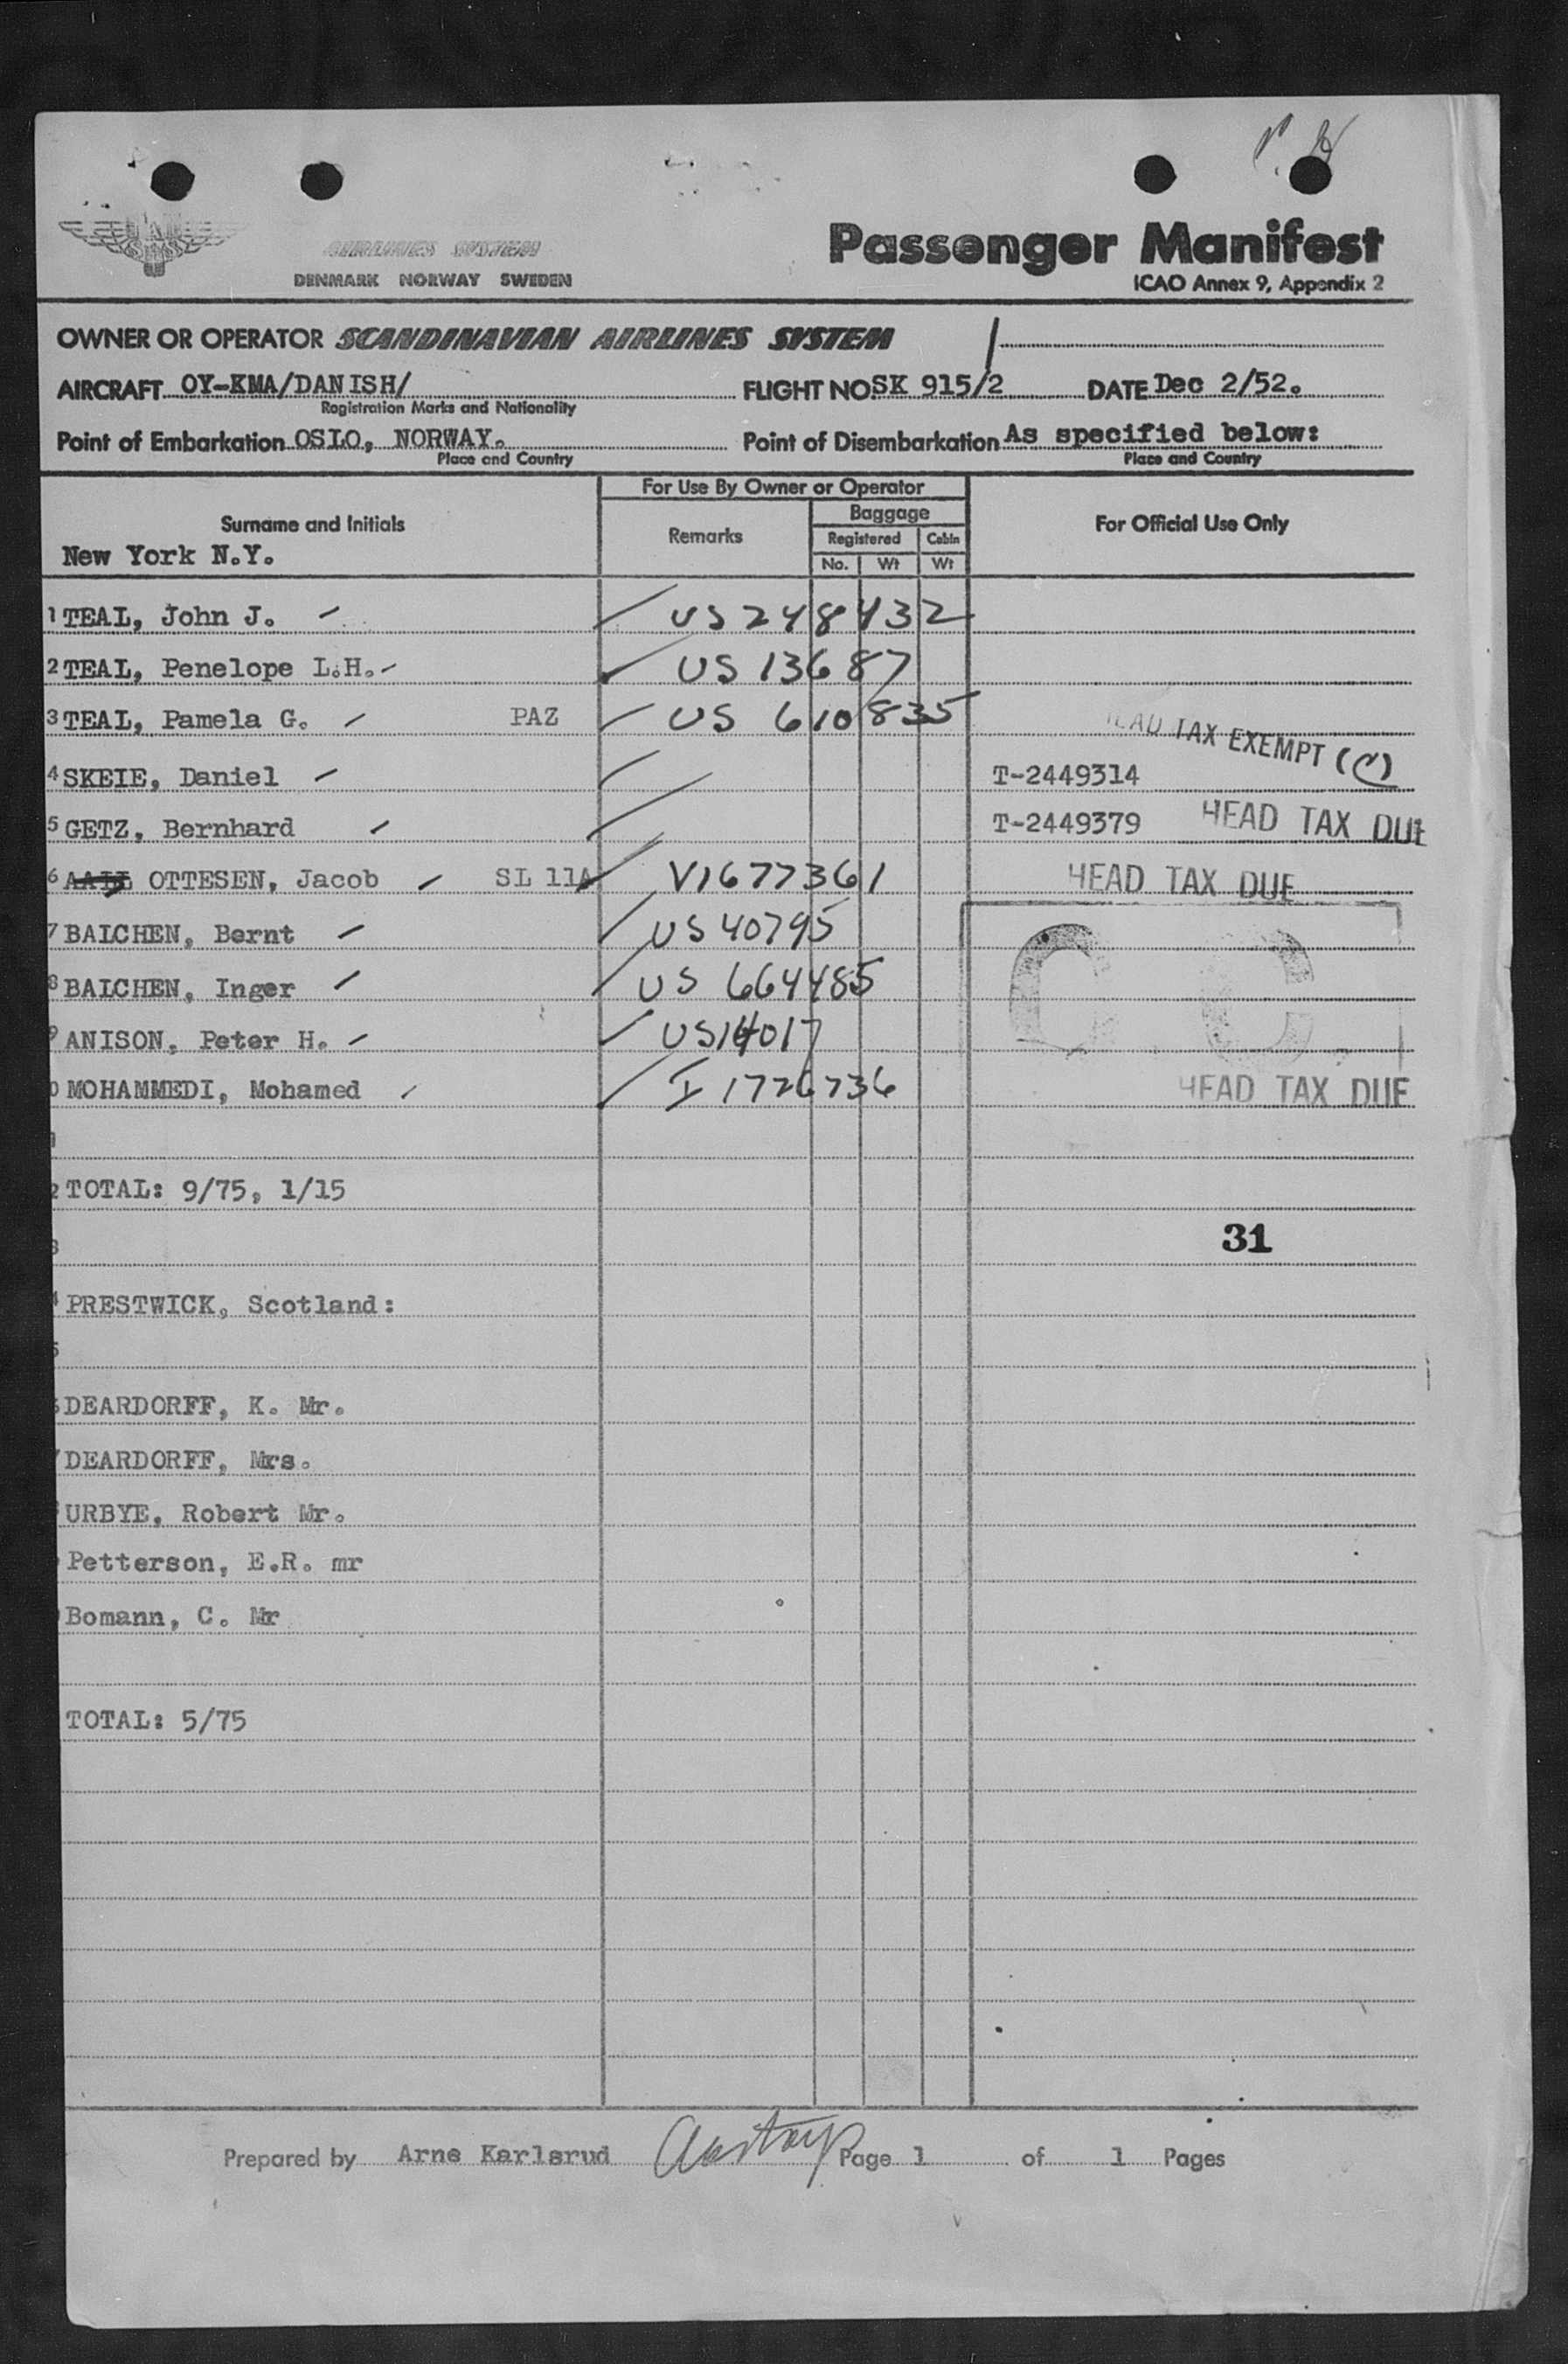 AIRLINES SYSTEM
DENMARK NORWAY SWEDEN
Passenger Manifest
ICAO Annex 9, Appendix 2
OWNER OR OPERATOR SCANDINAVIAN AIRLINES SYSTEM
AIRCRAFT OY-KMA/DANISH/ FLIGHT NO. SK 915/2 DATE Dec 2/52.
Registration Marks and Nationality
Point of Embarkation OSLO, NORWAY. Point of Disembarkation As specified below:
Place and Country Place and Country
For Use By Owner or Operator
Surname and Initials Remarks Baggage For Official Use Only
Registered Cabin
New York N.Y. No. Wt Wt
1 TEAL, John J. US 248432
2 TEAL, Penelope L.H. US 13687
3 TEAL, Pamela G. PAZ US 610835
HEAD TAX EXEMPT
4 SKEIE, Daniel T-2449314
5 GETZ, Bernhard T-2449379 HEAD TAX DUE
6 AALL OTTESEN, Jacob SL 11A V1677361 HEAD TAX DUE
7 BALCHEN, Bernt US 40795
8 BALCHEN, Inger US 664485
C C
9 ANISON, Peter H. US14017
0 MOHAMMEDI, Mohamed I 1726736 HEAD TAX DUE
2 TOTAL: 9/75, 1/15
31
4 PRESTWICK, Scotland:
DEARDORFF, K. Mr.
DEARDORFF, Mrs.
URBYE, Robert Mr.
Petterson, E.R. mr
Bomann, C. Mr
TOTAL: 5/75
Prepared by Arne Karlsrud Page 1 of 1 Pages